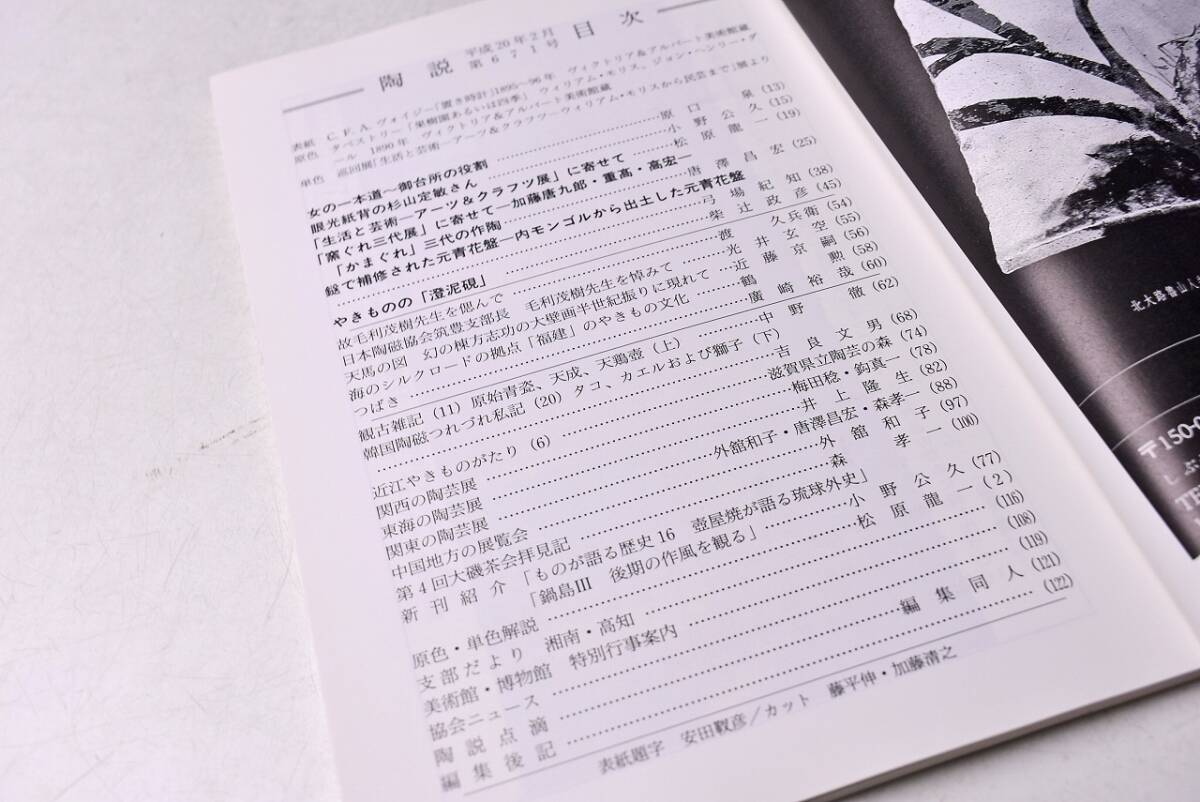 陶説 平成20年2月 第671号 目次
表紙 C.F.A.ヴォイジー「置き時計」1895-96年 ヴィクトリア&アルバート美術館蔵
原色 タペストリー「果樹園あるいは四季」 ウィリアム・モリス、ジョン・ヘンリー・ダ
ール 1890年 ヴィクトリア&アルバート美術館蔵
単色 巡回展「生活と芸術―アーツ&クラフツ―ウィリアム・モリスから民芸まで」展より
女の一本道~御台所の役割 原口泉 (13)
眼光紙背の杉山定敏さん 小野公久 (15)
「生活と芸術―アーツ&クラフツ展」に寄せて 松原龍一 (19)
「窯ぐれ三代展」に寄せて―加藤唐九郎・重髙・高宏―
「かまぐれ」三代の作陶 唐澤昌宏 (25)
鎹で補修された元青花盤―内モンゴルから出土した元青花盤
弓場紀知 (38)
やきものの「澄泥硯」 柴辻政彦 (45)
故毛利茂樹先生を偲んで 渡久兵衛 (54)
日本陶磁協会筑豊支部長 毛利茂樹先生を悼みて 光井玄空 (55)
天馬の図 幻の棟方志功の大壁画半世紀振りに現れて 近藤京嗣 (56)
海のシルクロードの拠点「福建」のやきもの文化 鶴勲 (58)
つばき 廣崎裕哉 (60)
観古雑記(11) 原始青瓷、天成、天鶏壺(上) 中野徹 (62)
韓国陶磁つれづれ私記(20) タコ、カエルおよび獅子(下)
吉良文男 (68)
近江やきものがたり(6) 滋賀県立陶芸の森 (74)
関西の陶芸展 梅田稔・鈎真一 (78)
東海の陶芸展 井上隆生 (82)
関東の陶芸展 外舘和子・唐澤昌宏・森孝一 (88)
中国地方の展覧会 外舘和子 (97)
第4回大磯茶会拝見記 森孝一 (100)
新刊紹介 「ものが語る歴史16 壺屋焼が語る琉球外史」 小野公久 (77)
「鍋島III 後期の作風を観る」
原色・単色解説 松原龍一 (2)
支部だより 湘南・高知 (116)
美術館・博物館 特別行事案内 (108)
協会ニュース (119)
陶説点滴 編集同人 (121)
編集後記 (122)
表紙題字 安田靫彦/カット 藤平伸・加藤清之
北大路魯山人
〒150-0
しぶ